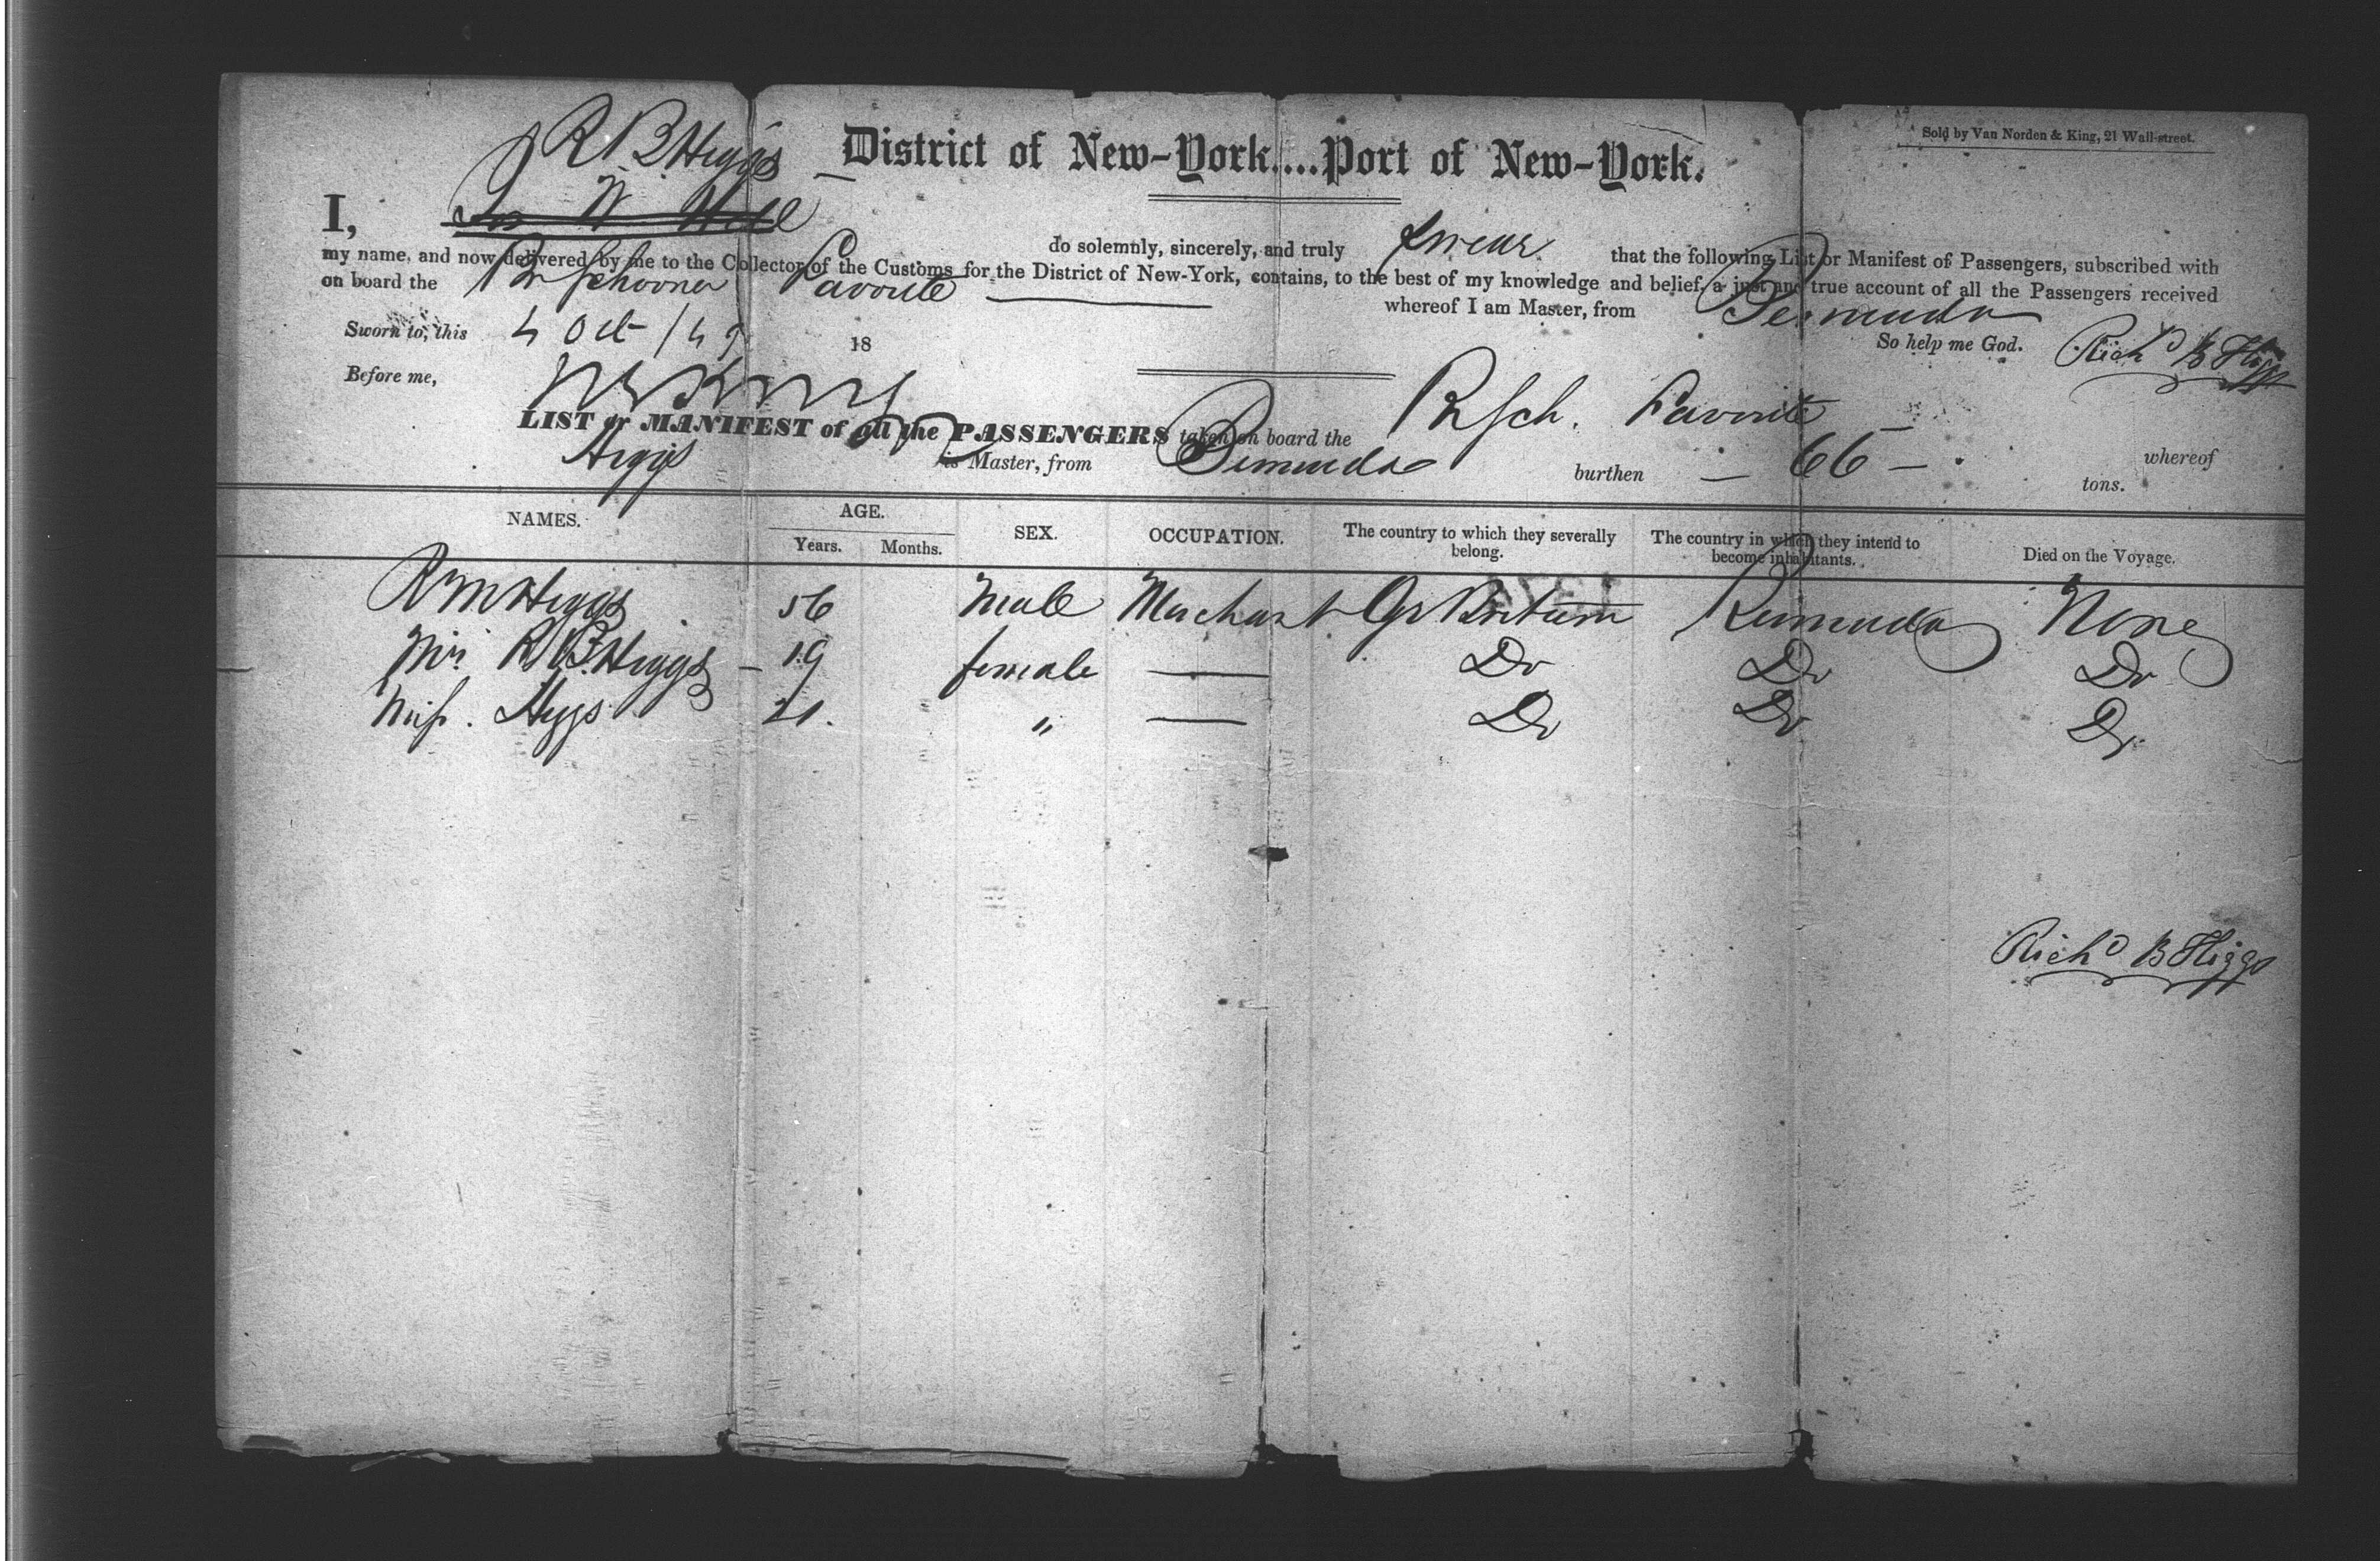 Sold by Van Norden & King, 21 Wall-street.
R B Higgs
District of New-York....Port of New-York.
I, do solemnly, sincerely, and truly swear that the following List or Manifest of Passengers, subscribed with
my name, and now delivered by me to the Collector of the Customs for the District of New-York, contains, to the best of my knowledge and belief, a just and true account of all the Passengers received
on board the Br Schooner Favorite whereof I am Master, from Bermuda
Sworn to, this 4 Oct /49 18 So help me God. Richd B Higgs
Before me,
LIST or MANIFEST of all the PASSENGERS taken on board the Br Sch. Favorite whereof
Higgs is Master, from Bermuda burthen 66 tons.
NAMES. AGE. SEX. OCCUPATION. The country to which they severally belong. The country in which they intend to become inhabitants. Died on the Voyage.
Years. Months.
R M Higgs 56 Male Merchant Gr Britain Bermuda None
Mrs R B Higgs 19 female — Do Do Do
Miss. Higgs 21. " — Do Do Do
Richd B Higgs